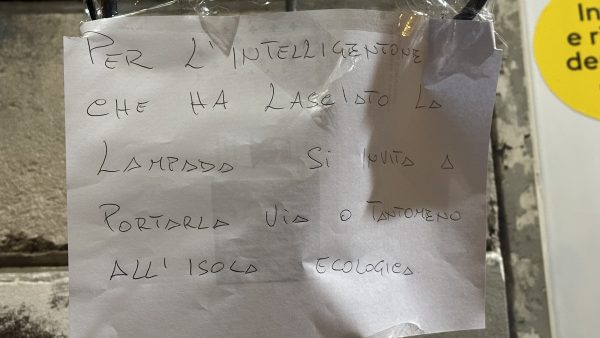 PER L'INTELLIGENTONE
CHE HA LASCIATO LA
LAMPADA SI INVITA A
PORTARLA VIA O TANTOMENO
ALL'ISOLA ECOLOGICA
In
e ri
de